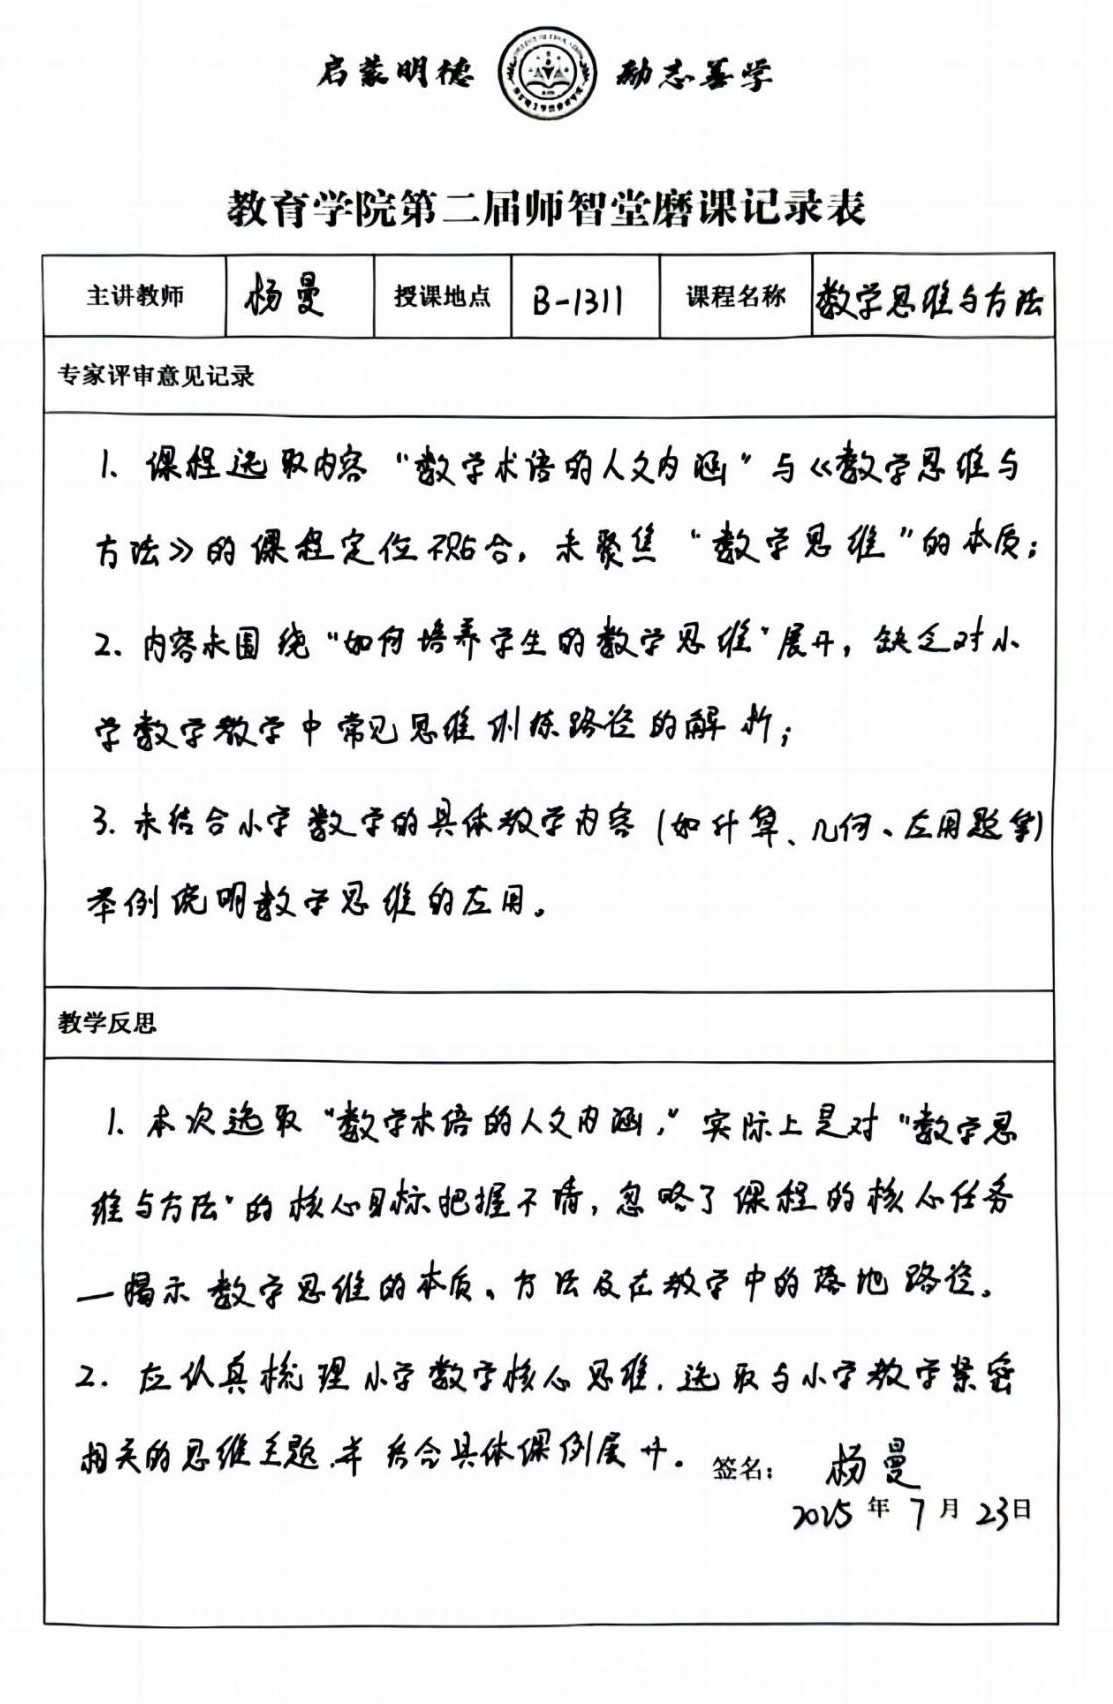 启蒙明德 励志善学
教育学院第二届师智堂磨课记录表
主讲教师 杨曼 授课地点 B-1311 课程名称 数学思维与方法
专家评审意见记录
1、课程选取内容“数学术语的人文内涵”与《数学思维与
方法》的课程定位不贴合，未聚焦“数学思维”的本质；
2、内容未围绕“如何培养学生的数学思维”展开，缺乏对小
学数学教学中常见思维训练路径的解析；
3.未结合小学数学的具体教学内容(如计算、几何、应用题等)
举例说明数学思维的应用。
教学反思
1.本次选取“数学术语的人文内涵，”实际上是对“数学思
维与方法”的核心目标把握不清，忽略了课程的核心任务
一揭示数学思维的本质、方法及在教学中的落地路径。
2.应认真梳理小学数学核心思维，选取与小学教学紧密
相关的思维主题，并结合具体课例展开。 签名： 杨曼
2025年7月23日